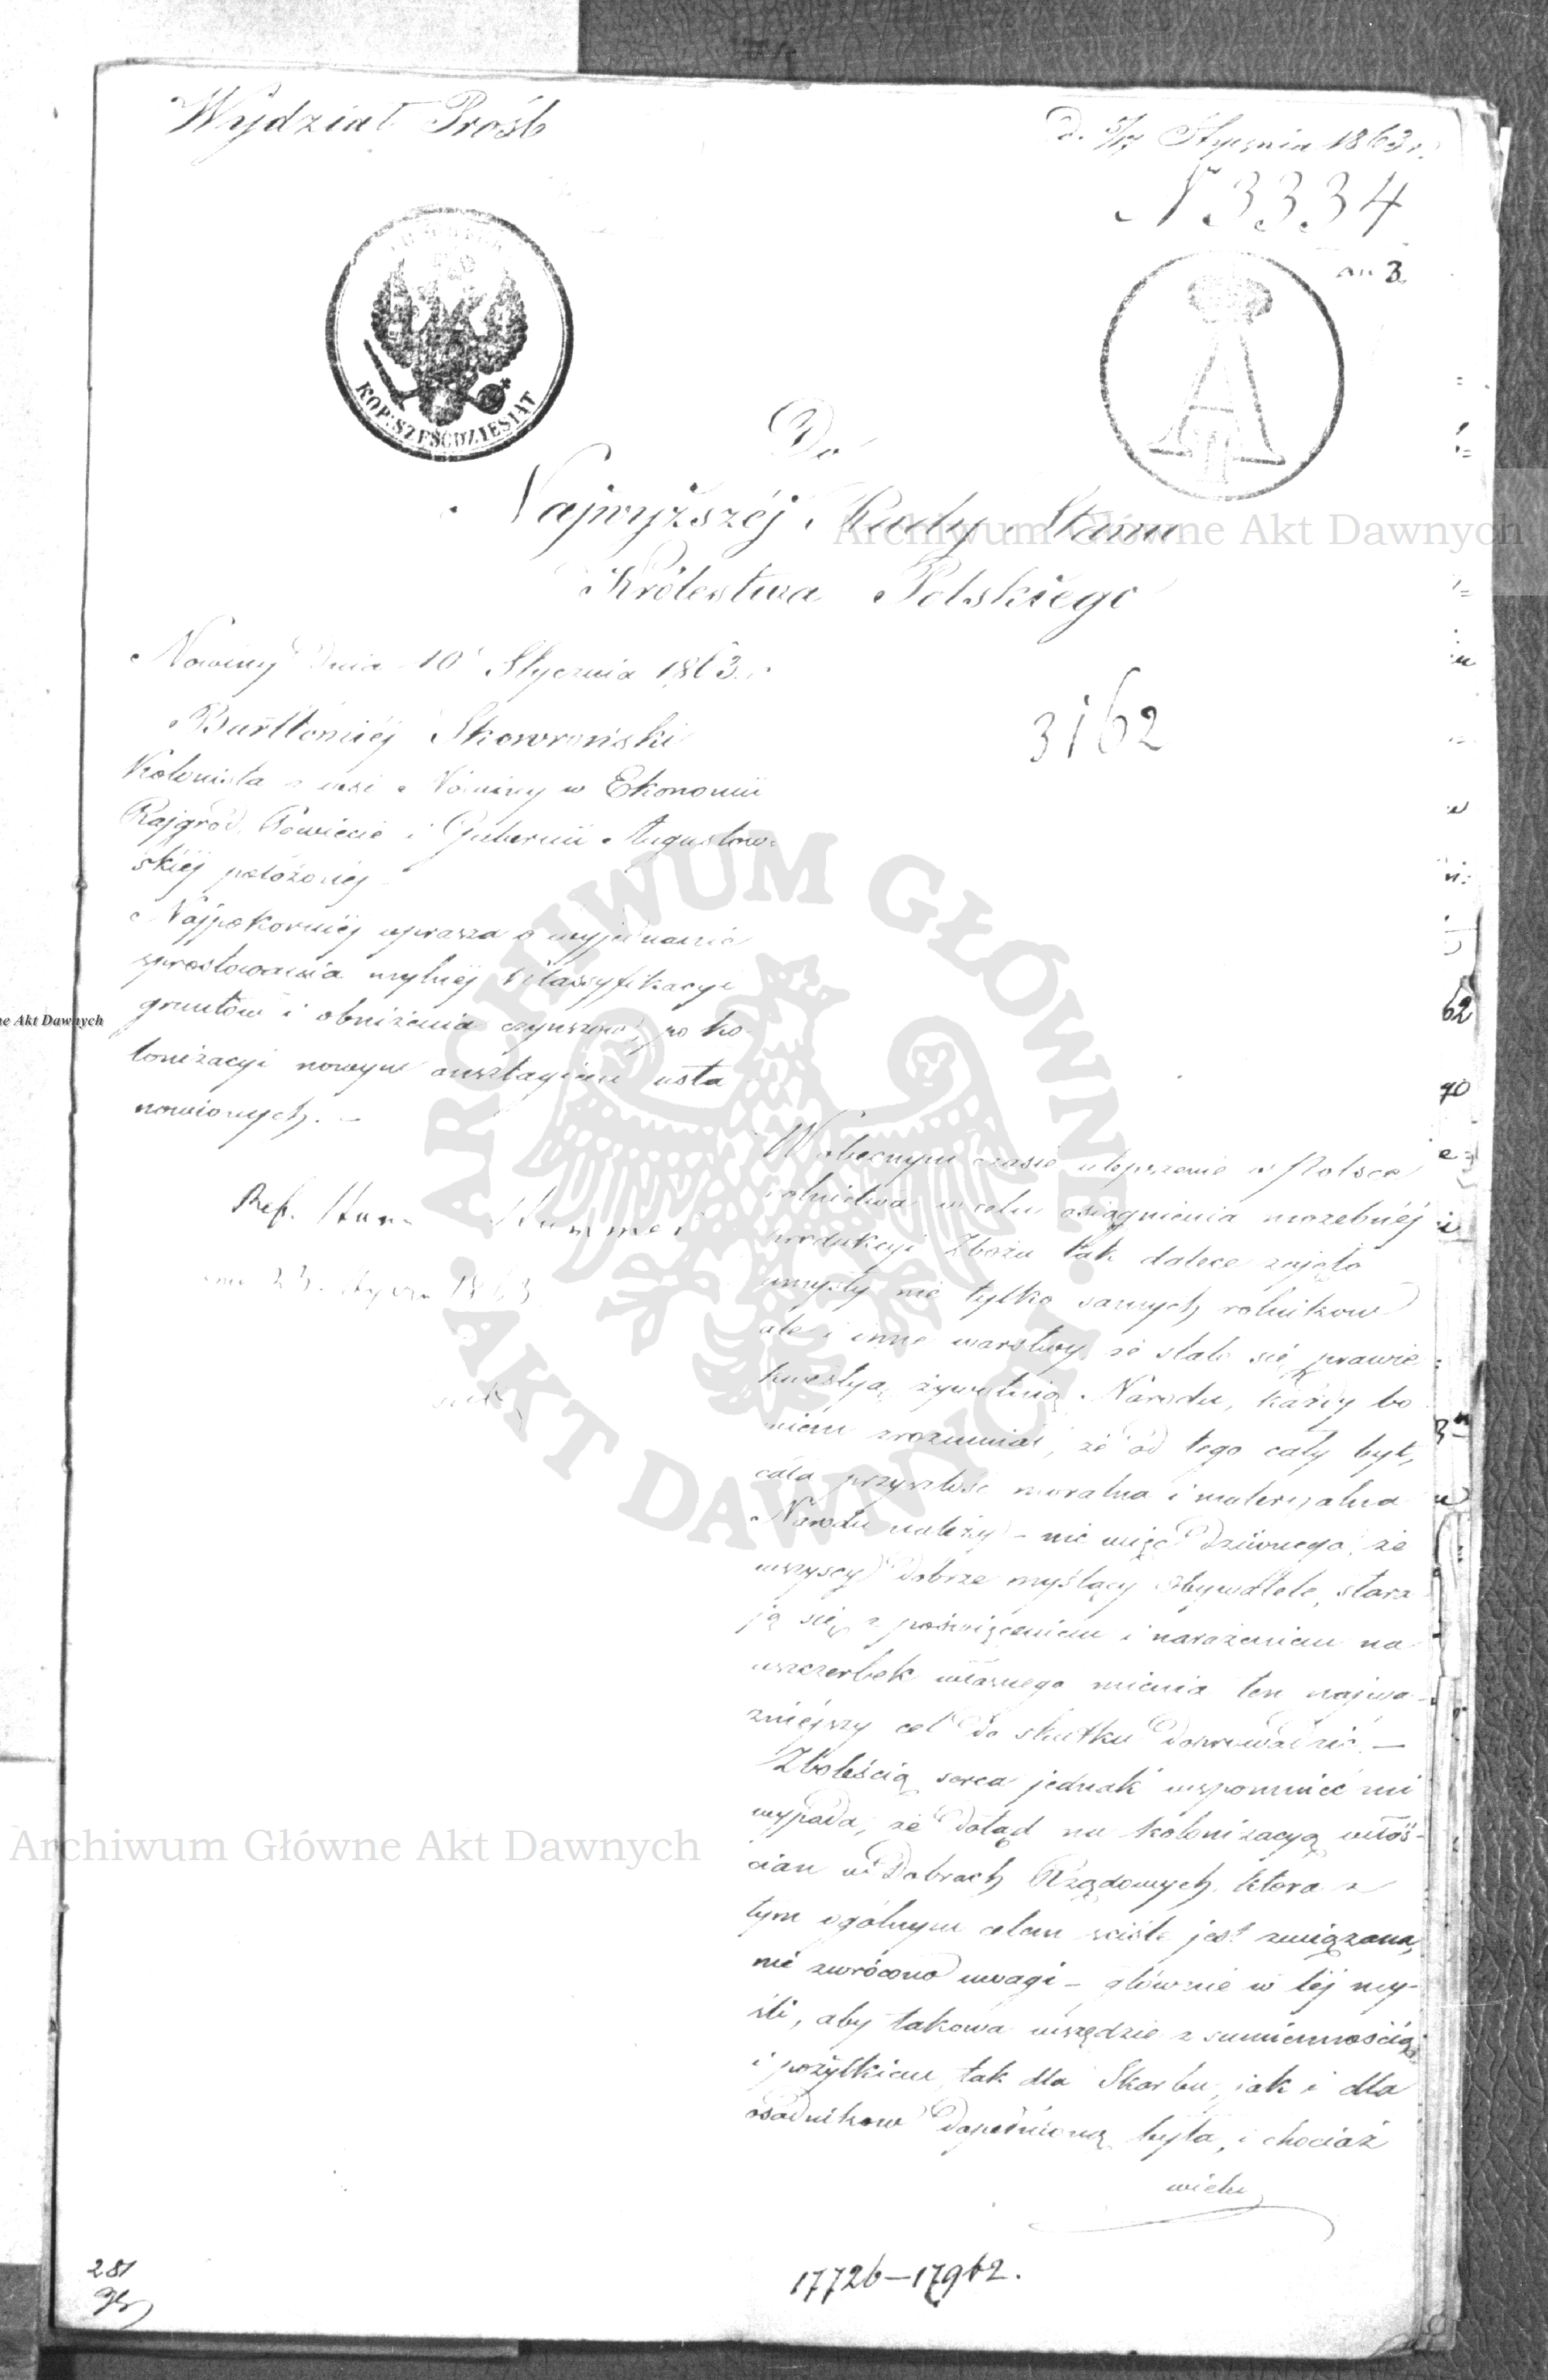 Wydział Próśb
D. 5/17 Stycznia 1863 r.
N 3334
KOP: SZEŚĆDZIESIĄT
Do
Najwyższéj Rady Stanu
Królestwa Polskiego
Nowiny Dnia 10 Stycznia 1863 r.
3162
Bartłomiéj Skowroński
Kolonista z wsi Nowiny w Ekonomii
Rajgród, Powiecie i Gubernii Augustow-
skiéj położonéj
Najpokorniéj uprasza o wyjednanie
sprostowania mylnéj klassyfikacyi
gruntów i obniżenia czynszów, po ko-
lonizacyi nowym anszlagiem usta
nowionych. –
Ref. Hummel
23. Stycz. 1863
W obecnym czasie ulepszenie w Polsce
rolnictwa w celu osiągnienia możebnéj
produkcyi Zboża tak dalece zajęło
umysły nie tylko samych rolników
ale i inne warstwy, że stało się prawie
kwestyą żywotnią Narodu, każdy bo
wiem zrozumiał, że od tego cały byt,
cała przyszłość moralna i materyalna
Narodu należy – nic więc dziwnego, że
wszyscy dobrze myślący Obywatele, stara
ją się z poświęceniem i narażeniem na
uszczerbek własnego mienia ten najwa-
żniejszy cel do skutku doprowadzić. –
Z boleścią serca jednak wspomnieć mi
wypada, że dotąd na kolonizacyą włoś-
cian w Dobrach Rządowych, która z
tym ogólnym celem ściśle jest związana,
nie zwrócono uwagi – głównie w téj my-
śli, aby takowa wszędzie z sumiennością
i pożytkiem, tak dla Skarbu, jak i dla
osadników dopełnioną była, i chociaż
wielu
281
17726–17962.
Archiwum Główne Akt Dawnych
Archiwum Główne Akt Dawnych
ne Akt Dawnych
ARCHIWUM GŁÓWNE
AKT DAWNYCH